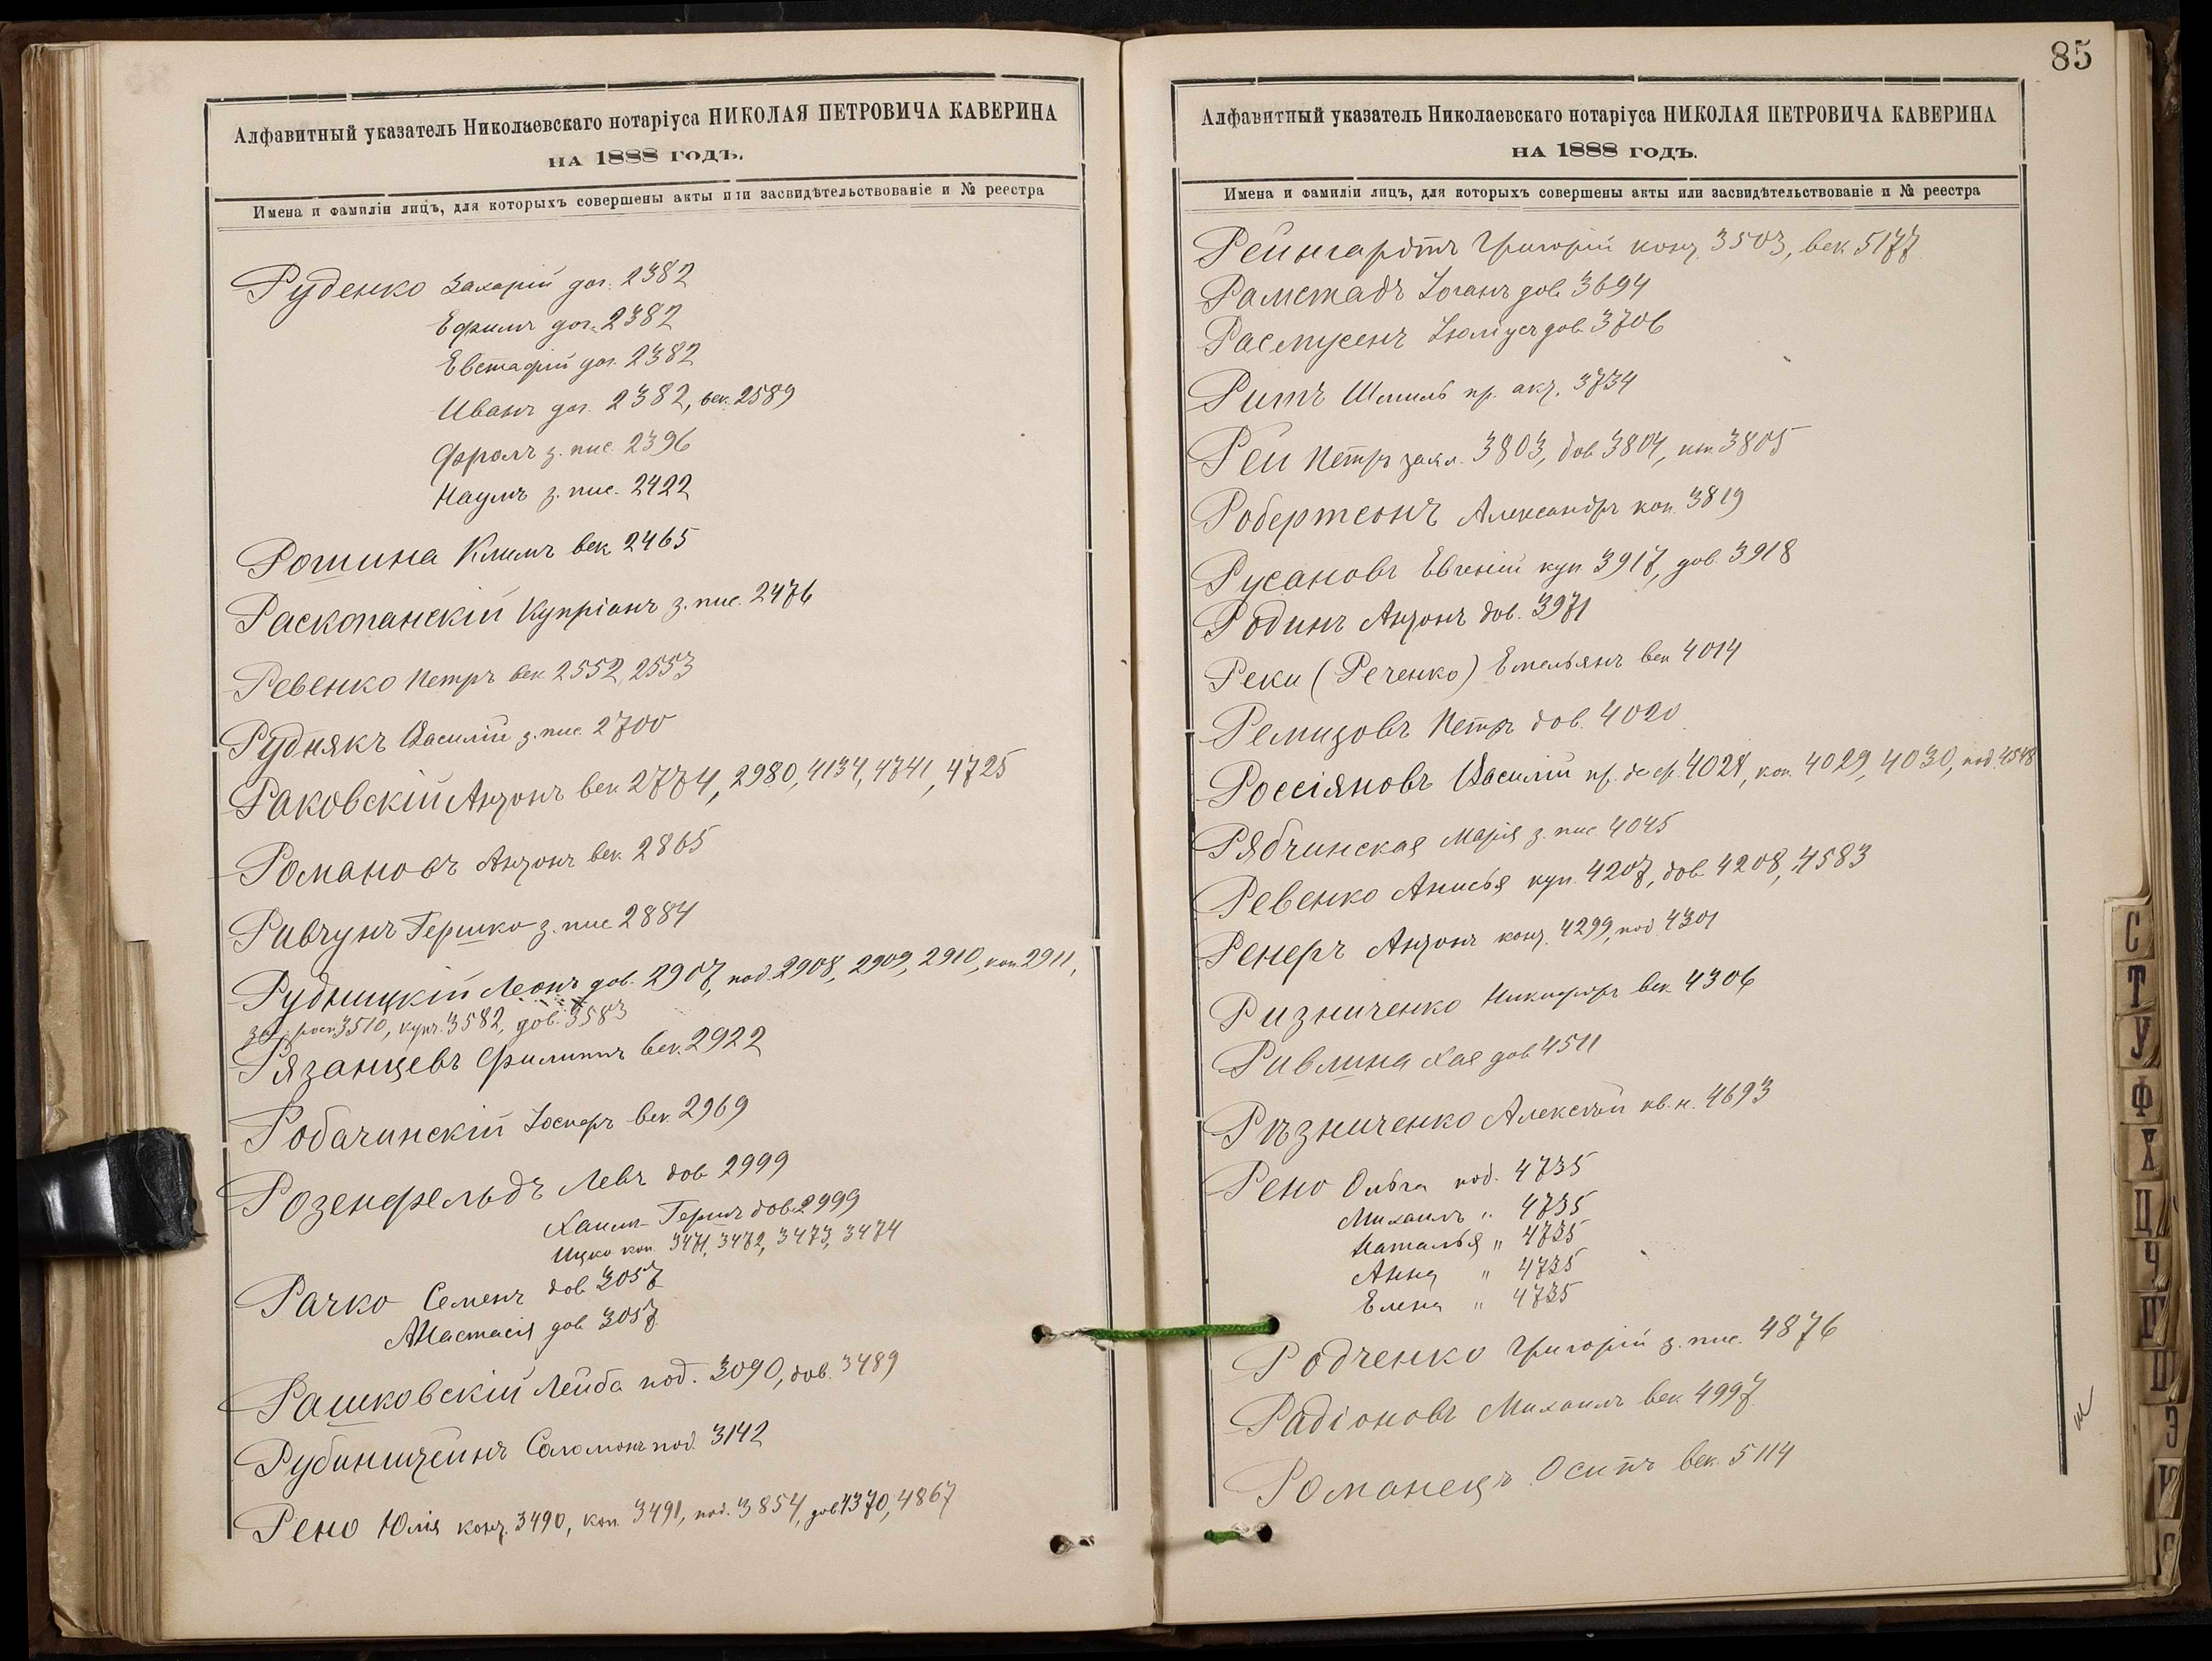 Алфавитный указатель Николаевскаго нотаріуса НИКОЛАЯ ПЕТРОВИЧА КАВЕРИНА
НА 1888 ГОДЪ.
Имена и фамиліи лицъ, для которыхъ совершены акты или засвидѣтельствованіе и № реестра
Руденко Захарій дог. 2382
Ефимъ дог. 2382
Евстафій дог. 2382
Иванъ дог. 2382, век. 2589
Фролъ з. пис. 2396
Наумъ з. пис. 2422
Рошина Климъ век 2465
Раскопанскій Купріанъ з. пис. 2476
Ревенко Петръ век 2552, 2553
Руднякъ Василій з. пис 2700
Раковскій Антонъ век 2774, 2980, 4134, 4741, 4725
Романовъ Антонъ век. 2865
Ривчунъ Гершко з. пис 2884
Рудницкій Леонъ дов. 2907, под. 2908, 2909, 2910, коп 2911,
росп 3510, купч. 3582, дов. 3583
Рязанцевъ Филиппъ век. 2922
Робачинскій Іосифъ век. 2969
Розенфельдъ Левъ дов 2999
Хаимъ-Гершъ дов. 2999
Ицко коп. 3471, 3472, 3473, 3474
Рачко Семенъ дов 3057
Анастасія дов 3057
Рашковскій Лейба под. 3090, дов. 3489
Рубинштейнъ Соломонъ под. 3142
Рено Юлія конт. 3490, коп. 3491, под. 3854, дов 4370, 4867
85
Алфавитный указатель Николаевскаго нотаріуса НИКОЛАЯ ПЕТРОВИЧА КАВЕРИНА
НА 1888 ГОДЪ.
Имена и фамиліи лицъ, для которыхъ совершены акты или засвидѣтельствованіе и № реестра
Рейнгардтъ Григорій конт. 3503, век 5177
Рамстадъ Іоганъ дов. 3694
Расмусенъ Іюліусъ дов. 3706
Ритъ Шмиль пр. акт. 3734
Рей Петръ закл. 3803, дов 3804, 3805
Робертсонъ Александръ коп. 3819
Русановъ Евгеній куп. 3917, дов. 3918
Родинъ Антонъ дов. 3971
Реки (Реченко) Емельянъ век 4014
Ремизовъ Петръ дов. 4020
Россіяновъ Василій 4028, коп. 4029, 4030, под. 4548
Рябчинская Марія з. пис. 4045
Ревенко Анисья куп. 4207, дов. 4208, 4583
Ренеръ Антонъ конт. 4299, под. 4301
Ризниченко Никифоръ век. 4306
Ривлина Хая дов 4511
Рѣзниченко Алексѣй кв. н. 4693
Рено Ольга под. 4735
Михаилъ " 4735
Наталья " 4735
Анна " 4735
Елена " 4735
Родченко Григорій з. пис. 4876
Радіоновъ Михаилъ век 4997
Романецъ Осипъ век. 5114
С
Т
У
Ф
Х
Ц
Ч
Ш
Щ
Э